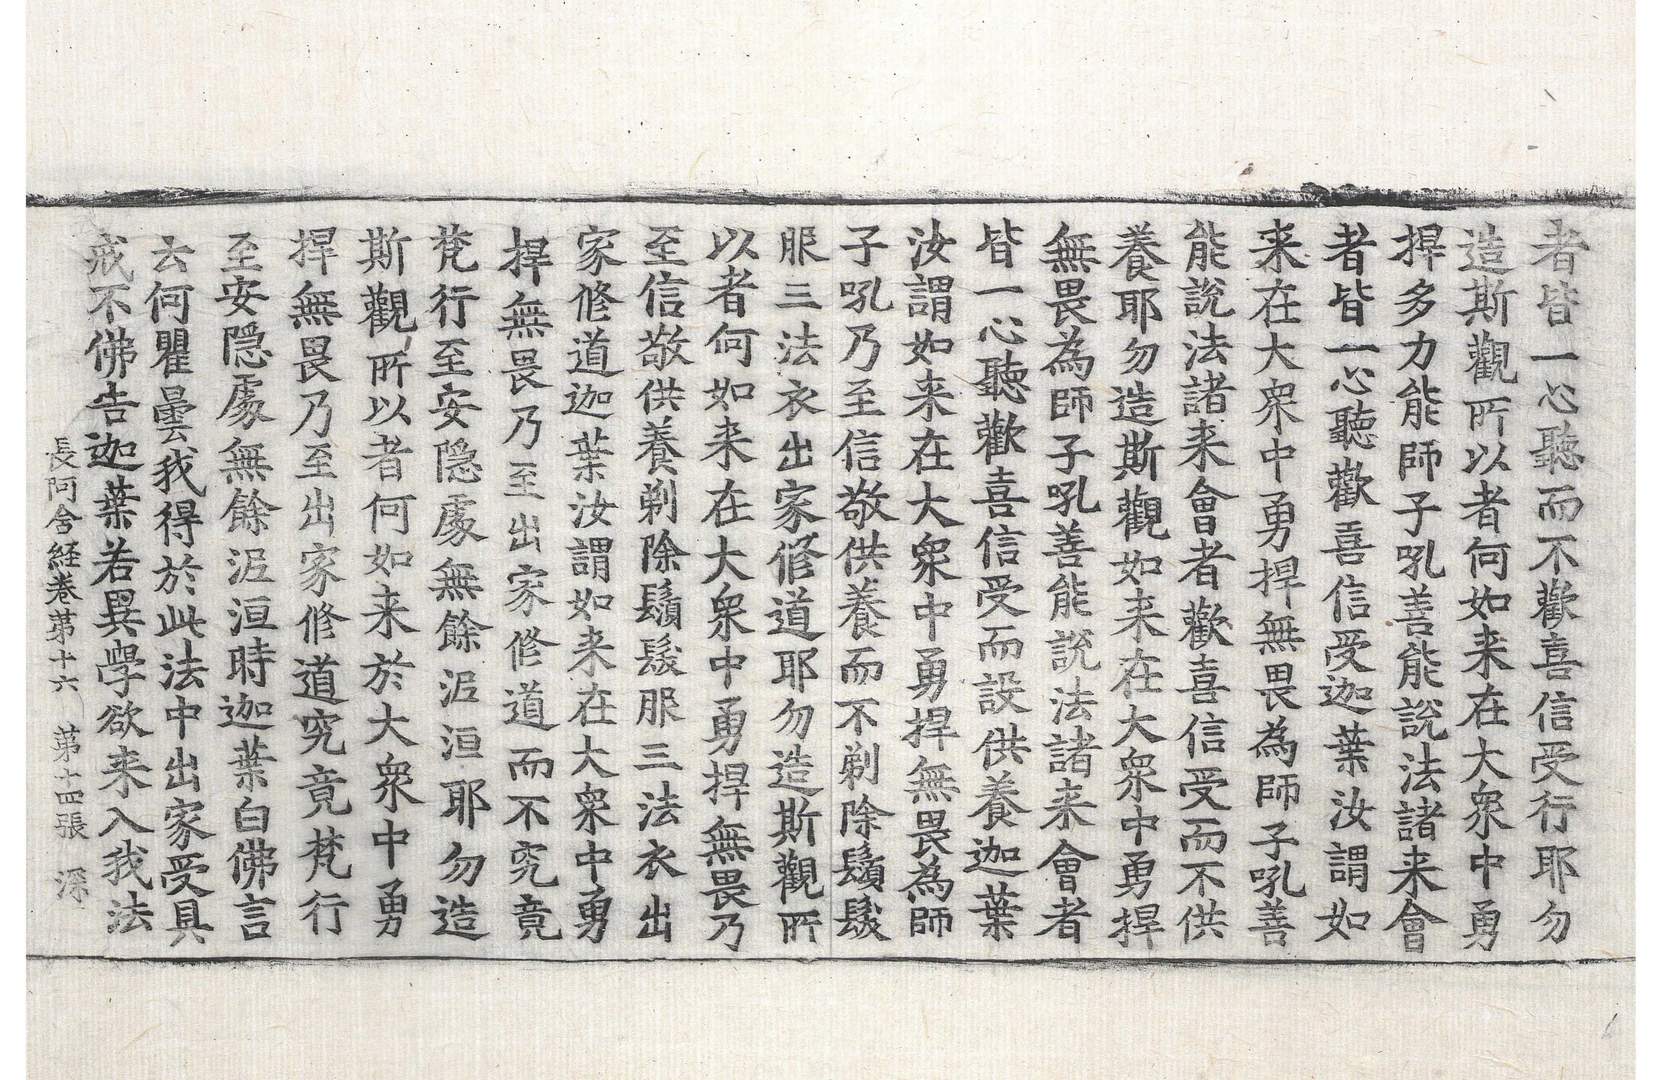 者皆一心聽而不歡喜信受行耶勿
造斯觀所以者何如来在大衆中勇
捍多力能師子吼善能說法諸来會
者皆一心聽歡喜信受迦葉汝謂如
来在大衆中勇捍無畏為師子吼善
能說法諸来會者歡喜信受而不供
養耶勿造斯觀如来在大衆中勇捍
無畏為師子吼善能說法諸来會者
皆一心聽歡喜信受而設供養迦葉
汝謂如来在大衆中勇捍無畏為師
子吼乃至信敬供養而不剃除鬚髮
服三法衣出家修道耶勿造斯觀所
以者何如来在大衆中勇捍無畏乃
至信敬供養剃除鬚髮服三法衣出
家修道迦葉汝謂如来在大衆中勇
捍無畏乃至出家修道而不究竟
梵行至安隱處無餘泥洹耶勿造
斯觀所以者何如来於大衆中勇
捍無畏乃至出家修道究竟梵行
至安隱處無餘泥洹時迦葉白佛言
云何瞿曇我得於此法中出家受具
戒不佛告迦葉若異學欲来入我法
長阿含経卷第十六 第十四張 深